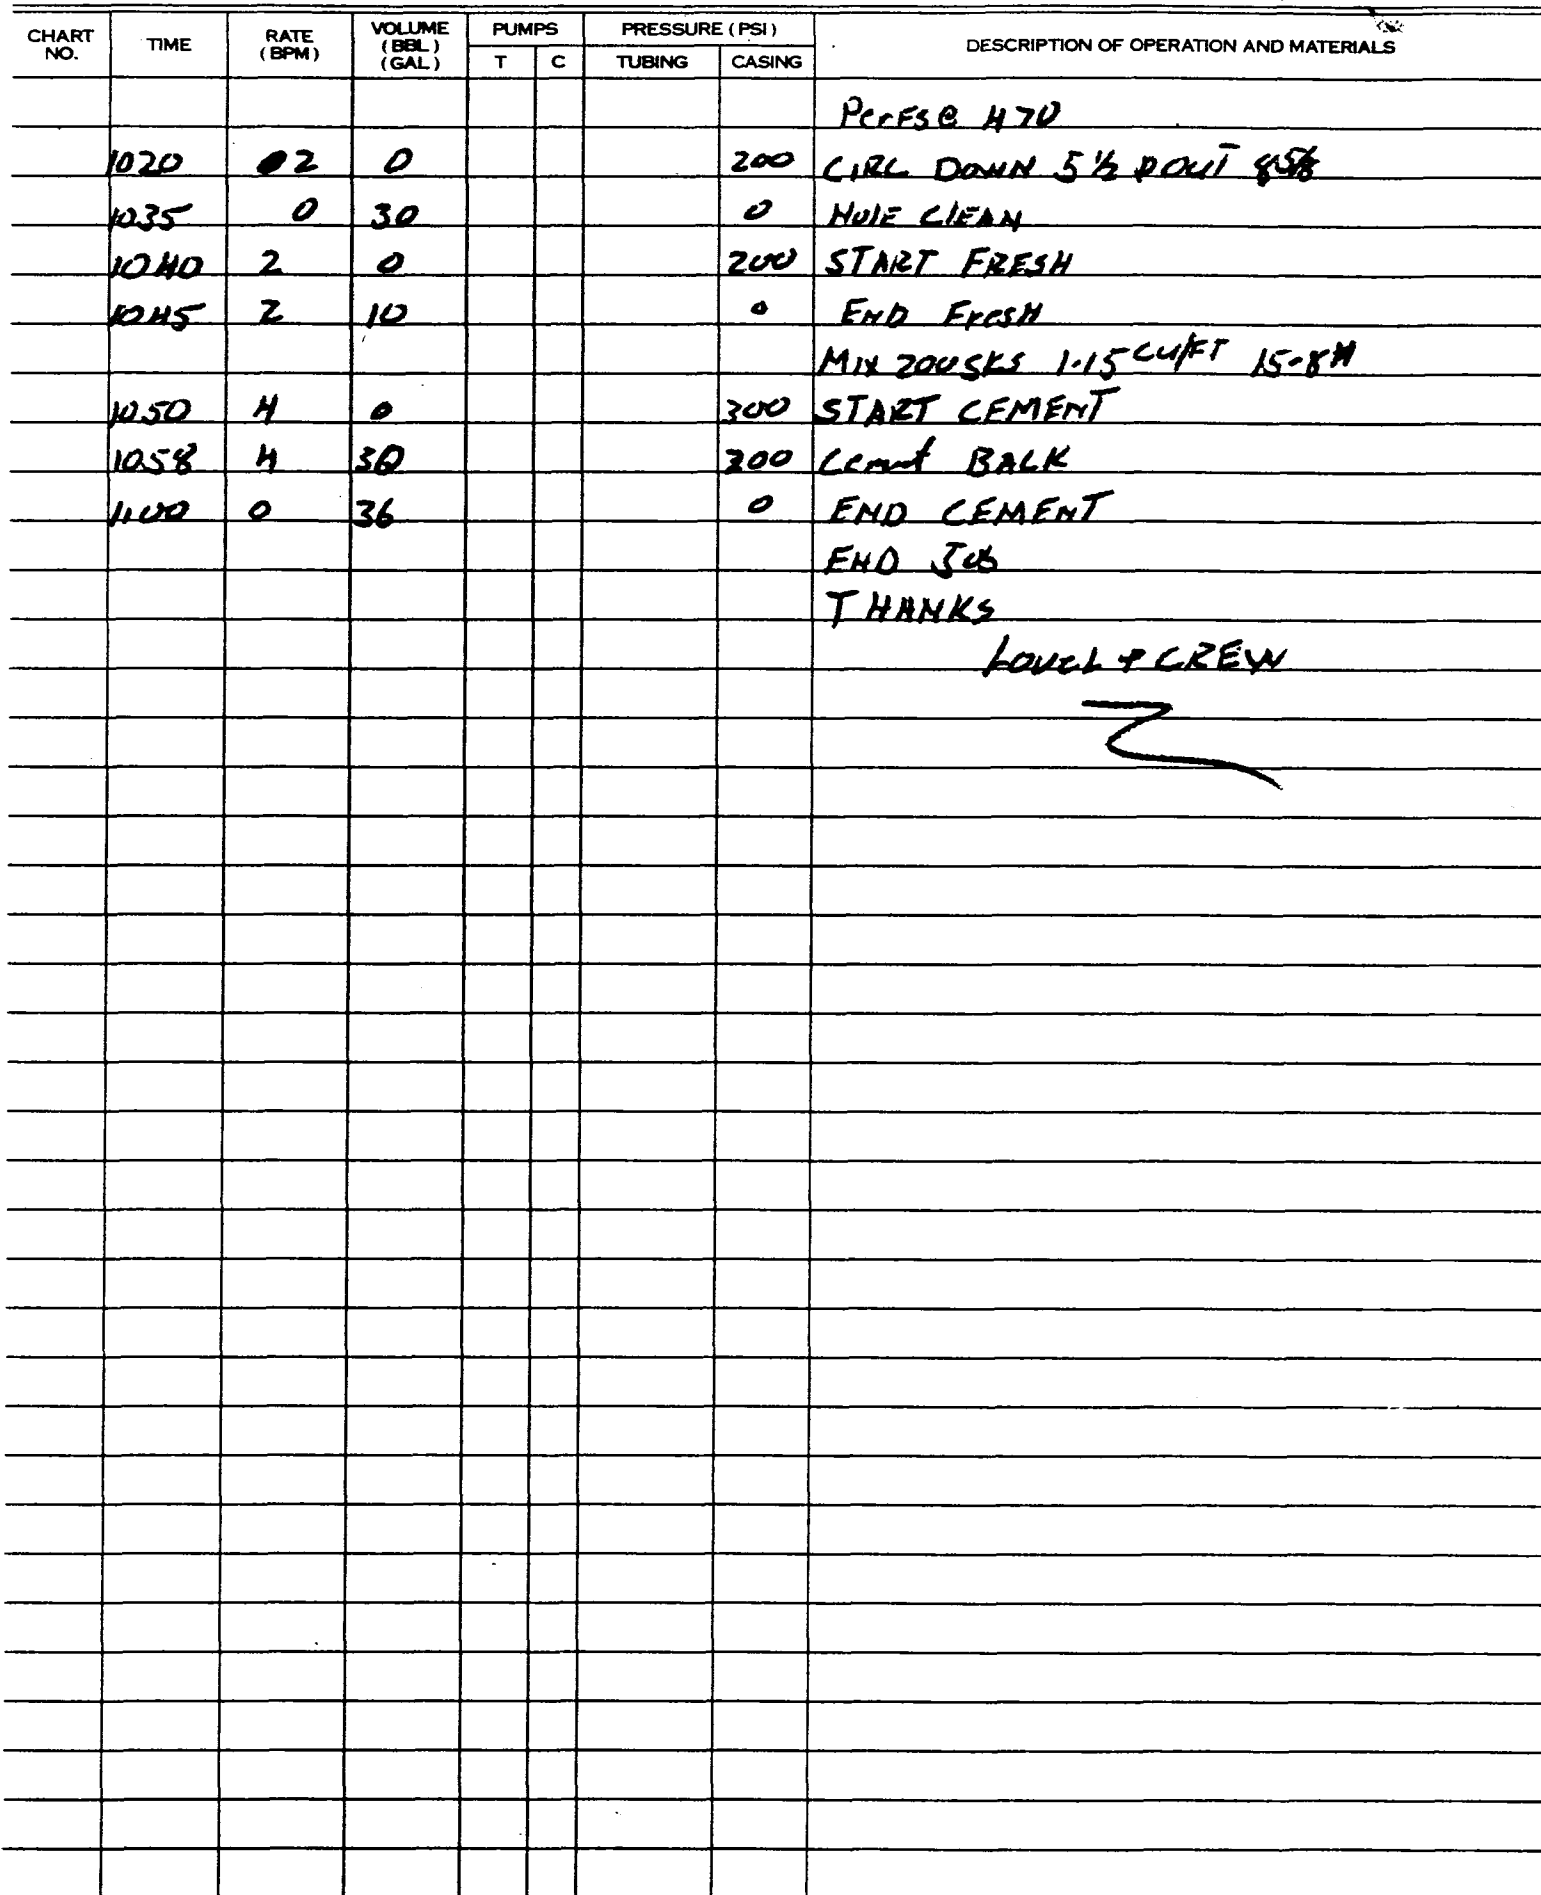 CHART NO. TIME RATE (BPM) VOLUME (BBL) (GAL) PUMPS T C PRESSURE (PSI) TUBING CASING DESCRIPTION OF OPERATION AND MATERIALS
PerFs @ 470
1020 02 0 200 CIRC DOWN 5 1/2 & OUT 8 5/8
1035 0 30 0 HOlE ClEAN
1040 2 0 200 START FRESH
1045 2 10 0 END FresH
MIX 200 SKS 1.15 CU/FT 15.8#
1050 4 0 300 START CEMENT
1058 4 30 200 Cement BACK
1100 0 36 0 END CEMENT
END Job
THANKS
& CREW